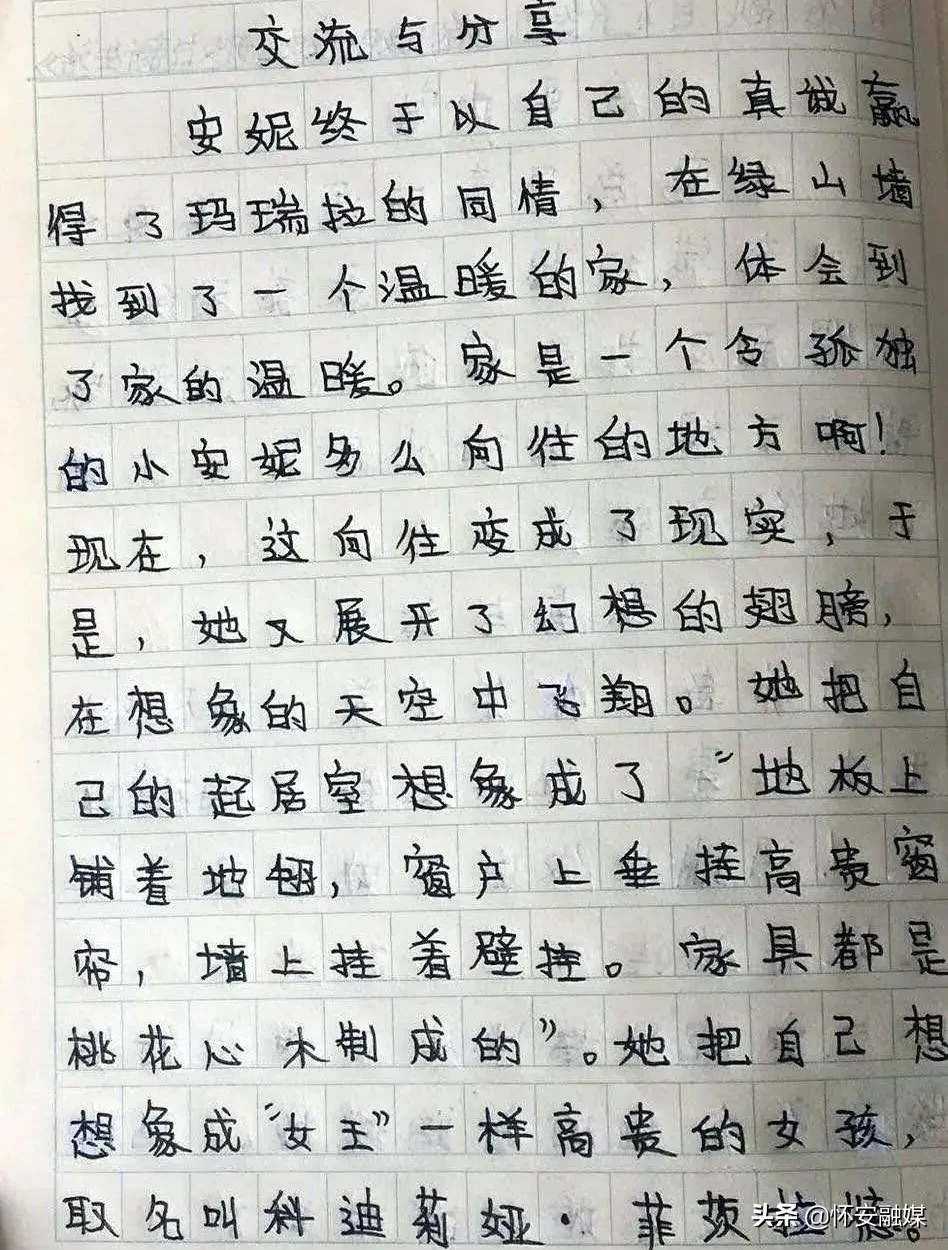 交流与分享
安妮终于以自己的真诚赢
得了玛瑞拉的同情，在绿山墙
找到了一个温暖的家，体会到
了家的温暖。家是一个令孤独
的小安妮多么向往的地方啊！
现在，这向往变成了现实，于
是，她又展开了幻想的翅膀，
在想象的天空中飞翔。她把自
己的起居室想象成了“地板上
铺着地毯，窗户上垂挂高贵窗
帘，墙上挂着壁挂。家具都是
桃花心木制成的”。她把自己想
想象成“女王”一样高贵的女孩，
取名叫科迪莉娅·菲茨拉德。
头条@怀安融媒